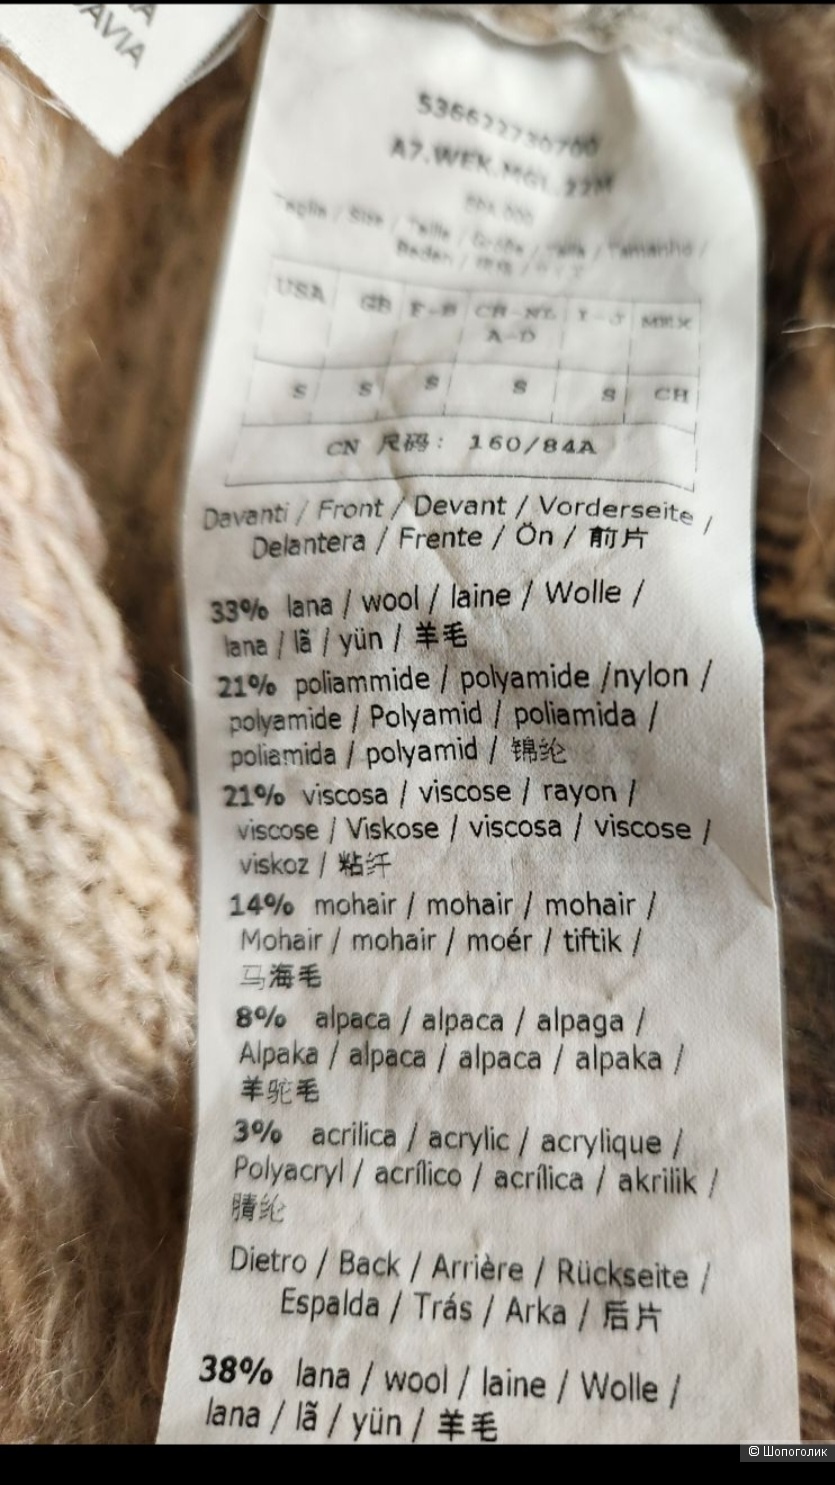 AVIA
536622730700
A7.WEK.MGL.22M
Taglia / Size / Taille / Größe / Talla / Tamanho /
Beden /
USA GB F-B CH-NL I-J MEX
A-D
S S S S S CH
CN 尺码: 160/84A
Davanti / Front / Devant / Vorderseite /
Delantera / Frente / Ön / 前片
33% lana / wool / laine / Wolle /
lana / lã / yün / 羊毛
21% poliammide / polyamide /nylon /
polyamide / Polyamid / poliamida /
poliamida / polyamid / 锦纶
21% viscosa / viscose / rayon /
viscose / Viskose / viscosa / viscose /
viskoz / 粘纤
14% mohair / mohair / mohair /
Mohair / mohair / moér / tiftik /
马海毛
8% alpaca / alpaca / alpaga /
Alpaka / alpaca / alpaca / alpaka /
羊驼毛
3% acrilica / acrylic / acrylique /
Polyacryl / acrílico / acrílica / akrilik /
腈纶
Dietro / Back / Arrière / Rückseite /
Espalda / Trás / Arka / 后片
38% lana / wool / laine / Wolle /
lana / lã / yün / 羊毛
© Шопоголик